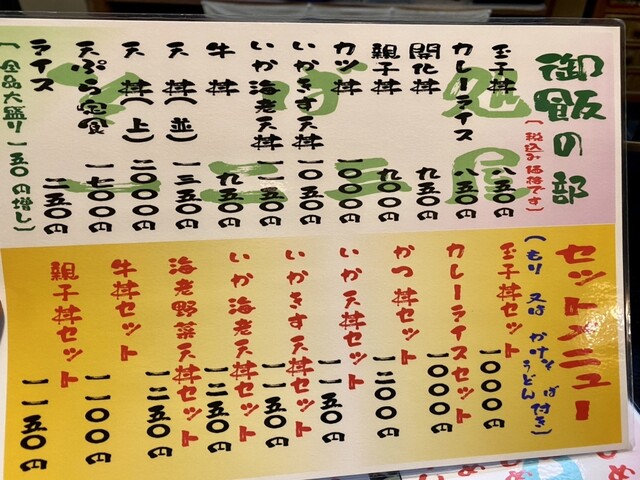 御飯の部
(税込み価格です)
玉子丼 八五〇円
カレーライス 八五〇円
開化丼 九五〇円
親子丼 九〇〇円
カツ丼 一〇〇〇円
いかきす天丼 一〇五〇円
いか海老天丼 一一五〇円
牛丼 九五〇円
天丼(並) 一三五〇円
天丼(上) 二〇〇〇円
天ぷら定食 一七〇〇円
ライス 二五〇円
(全品大盛り一五〇円増し)
セットメニュー
(もり又はかけそば うどん付き)
玉子丼セット 一〇〇〇円
カレーライスセット 一〇〇〇円
かつ丼セット 一二〇〇円
いか天丼セット 一一五〇円
いかきす天丼セット 一一五〇円
いか海老天丼セット 一二五〇円
海老野菜天丼セット 一二五〇円
牛丼セット 一一〇〇円
親子丼セット 一一五〇円